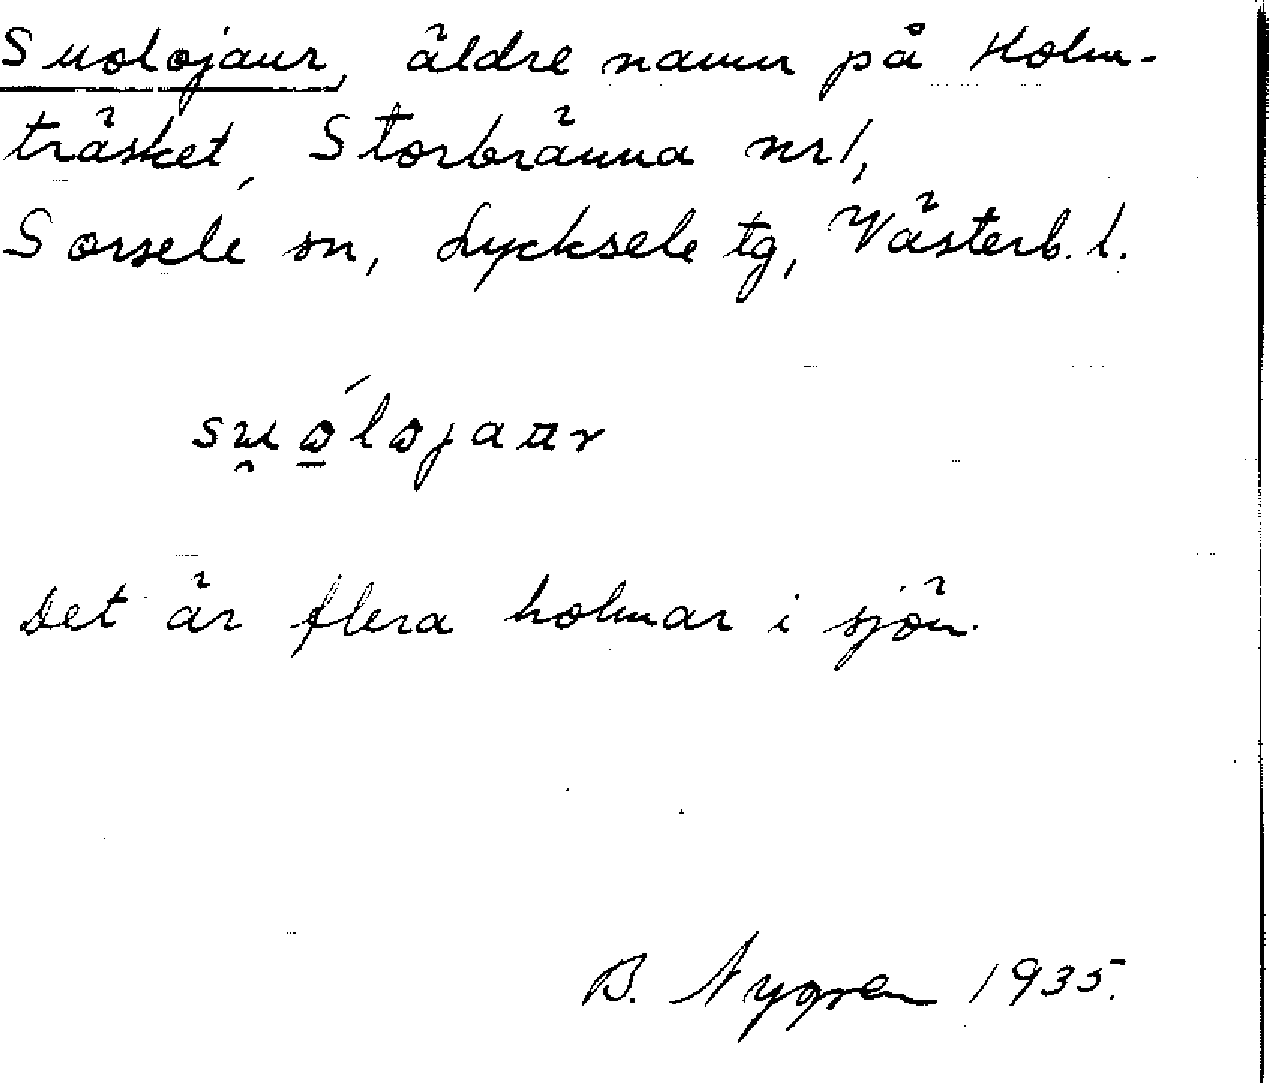 Suolojaur, äldre namn på Holm-
träsket, Storbränna nr 1,
Sorsele sn, Lycksele tg, Västerb. l.
su̯o̱´lojaur
Det är flera holmar i sjön.
B. Nygren 1935.